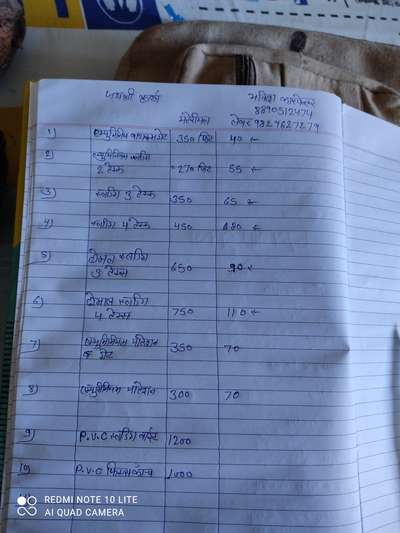 8890512474
मटेरियल लेबर 9829627279
1) एल्युमिनियम 350 फिट 40
2) एल्युमिनियम स्लाडिंग
2 ट्रेक 270 फिट 55
3) स्लाडिंग 3 ट्रेक 350 65
4) स्लाडिंग 4 ट्रेक 450 80
5) डोमल स्लाडिंग
3 ट्रेक्स 650 90
6) डोमल स्लाडिंग
4 ट्रेक्स 750 110
7) एल्युमिनियम पार्टिशन
गेट 350 70
8) एल्युमिनियम पार्टिशन 300 70
9) P.V.C स्लाडिंग 1200
10) P.V.C 1000
REDMI NOTE 10 LITE
AI QUAD CAMERA